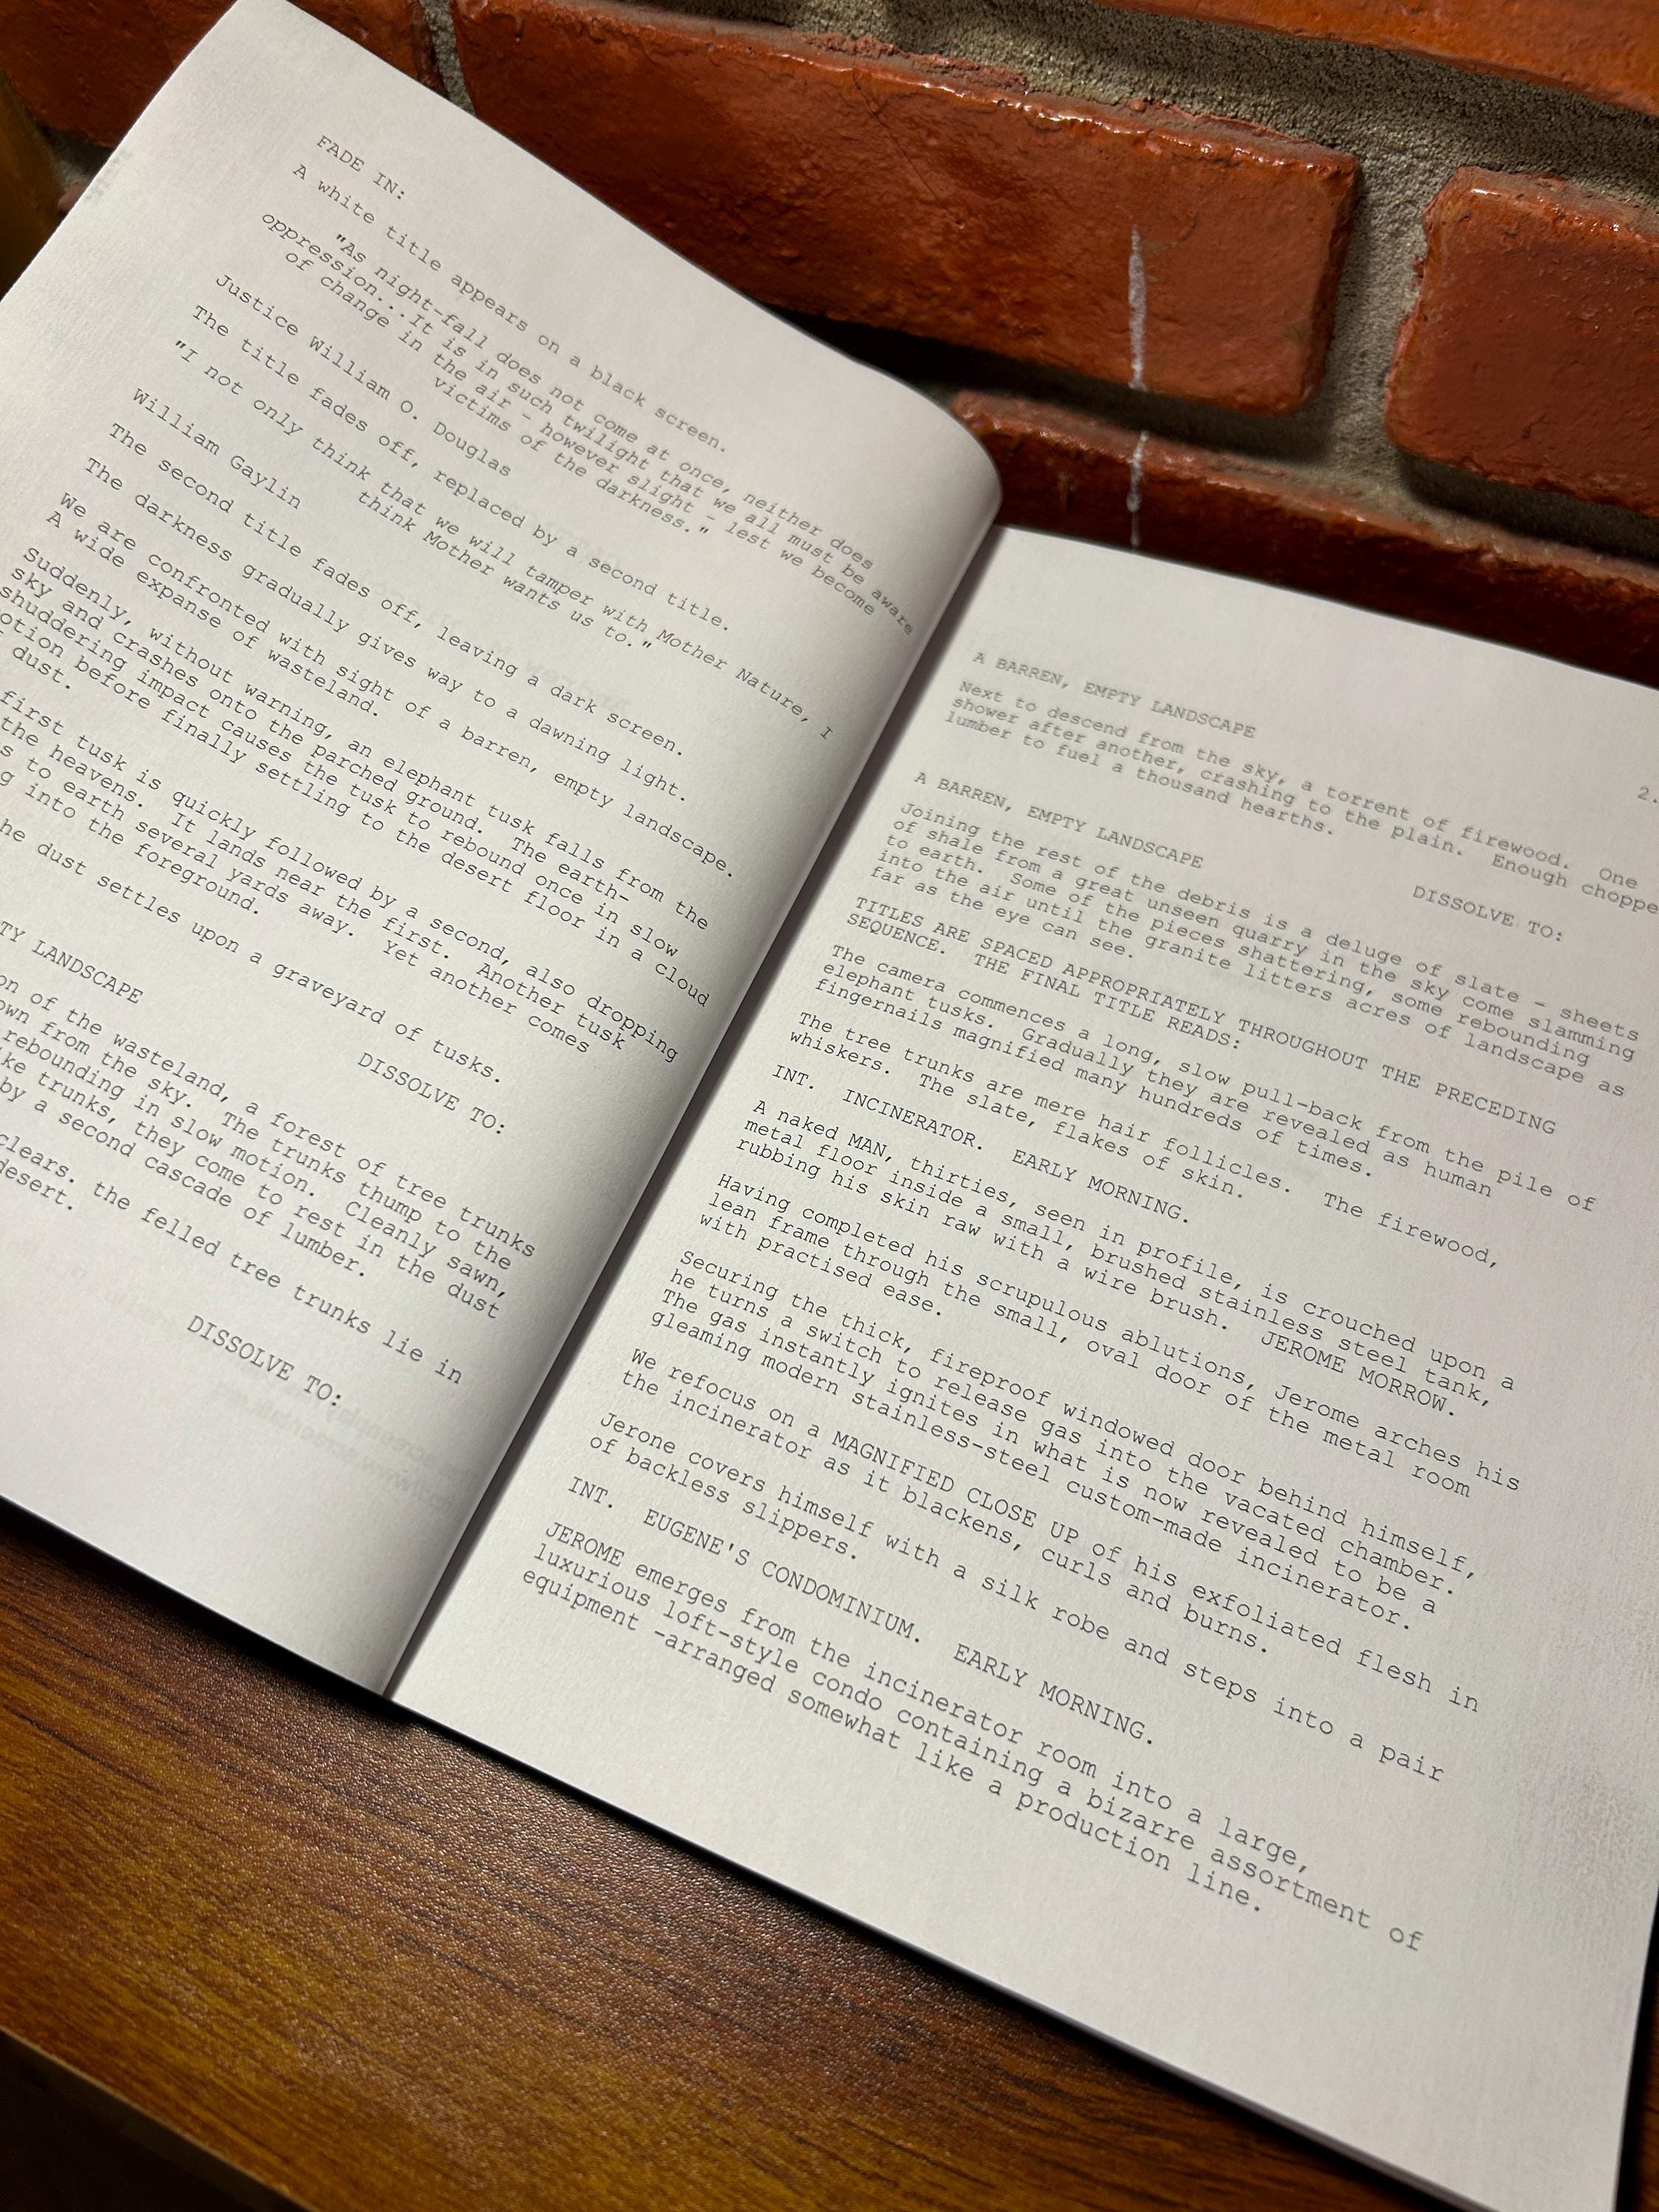 FADE IN:
A white title appears on a black screen.
"As night-fall does not come at once, neither does
oppression...It is in such twilight that we all must be aware
of change in the air - however slight - lest we become
victims of the darkness."
Justice William O. Douglas
The title fades off, replaced by a second title.
"I not only think that we will tamper with Mother Nature, I
think Mother wants us to."
William Gaylin
The second title fades off, leaving a dark screen.
The darkness gradually gives way to a dawning light.
We are confronted with sight of a barren, empty landscape.
A wide expanse of wasteland.
Suddenly, without warning, an elephant tusk falls from the
sky and crashes onto the parched ground. The earth-
shuddering impact causes the tusk to rebound once in slow
otion before finally settling to the desert floor in a cloud
dust.
first tusk is quickly followed by a second, also dropping
the heavens. It lands near the first. Another tusk
s to earth several yards away. Yet another comes
g into the foreground.
he dust settles upon a graveyard of tusks.
DISSOLVE TO:
TY LANDSCAPE
on of the wasteland, a forest of tree trunks
own from the sky. The trunks thump to the
rebounding in slow motion. Cleanly sawn,
ke trunks, they come to rest in the dust
by a second cascade of lumber.
clears. the felled tree trunks lie in
desert.
DISSOLVE TO:
2.
A BARREN, EMPTY LANDSCAPE
Next to descend from the sky, a torrent of firewood. One
shower after another, crashing to the plain. Enough choppe
lumber to fuel a thousand hearths.
DISSOLVE TO:
A BARREN, EMPTY LANDSCAPE
Joining the rest of the debris is a deluge of slate - sheets
of shale from a great unseen quarry in the sky come slamming
to earth. Some of the pieces shattering, some rebounding
into the air until the granite litters acres of landscape as
far as the eye can see.
TITLES ARE SPACED APPROPRIATELY THROUGHOUT THE PRECEDING
SEQUENCE. THE FINAL TITLE READS:
The camera commences a long, slow pull-back from the pile of
elephant tusks. Gradually they are revealed as human
fingernails magnified many hundreds of times.
The tree trunks are mere hair follicles. The firewood,
whiskers. The slate, flakes of skin.
INT. INCINERATOR. EARLY MORNING.
A naked MAN, thirties, seen in profile, is crouched upon a
metal floor inside a small, brushed stainless steel tank,
rubbing his skin raw with a wire brush. JEROME MORROW.
Having completed his scrupulous ablutions, Jerome arches his
lean frame through the small, oval door of the metal room
with practised ease.
Securing the thick, fireproof windowed door behind himself,
he turns a switch to release gas into the vacated chamber.
The gas instantly ignites in what is now revealed to be a
gleaming modern stainless-steel custom-made incinerator.
We refocus on a MAGNIFIED CLOSE UP of his exfoliated flesh in
the incinerator as it blackens, curls and burns.
Jerone covers himself with a silk robe and steps into a pair
of backless slippers.
INT. EUGENE'S CONDOMINIUM. EARLY MORNING.
JEROME emerges from the incinerator room into a large,
luxurious loft-style condo containing a bizarre assortment of
equipment -arranged somewhat like a production line.